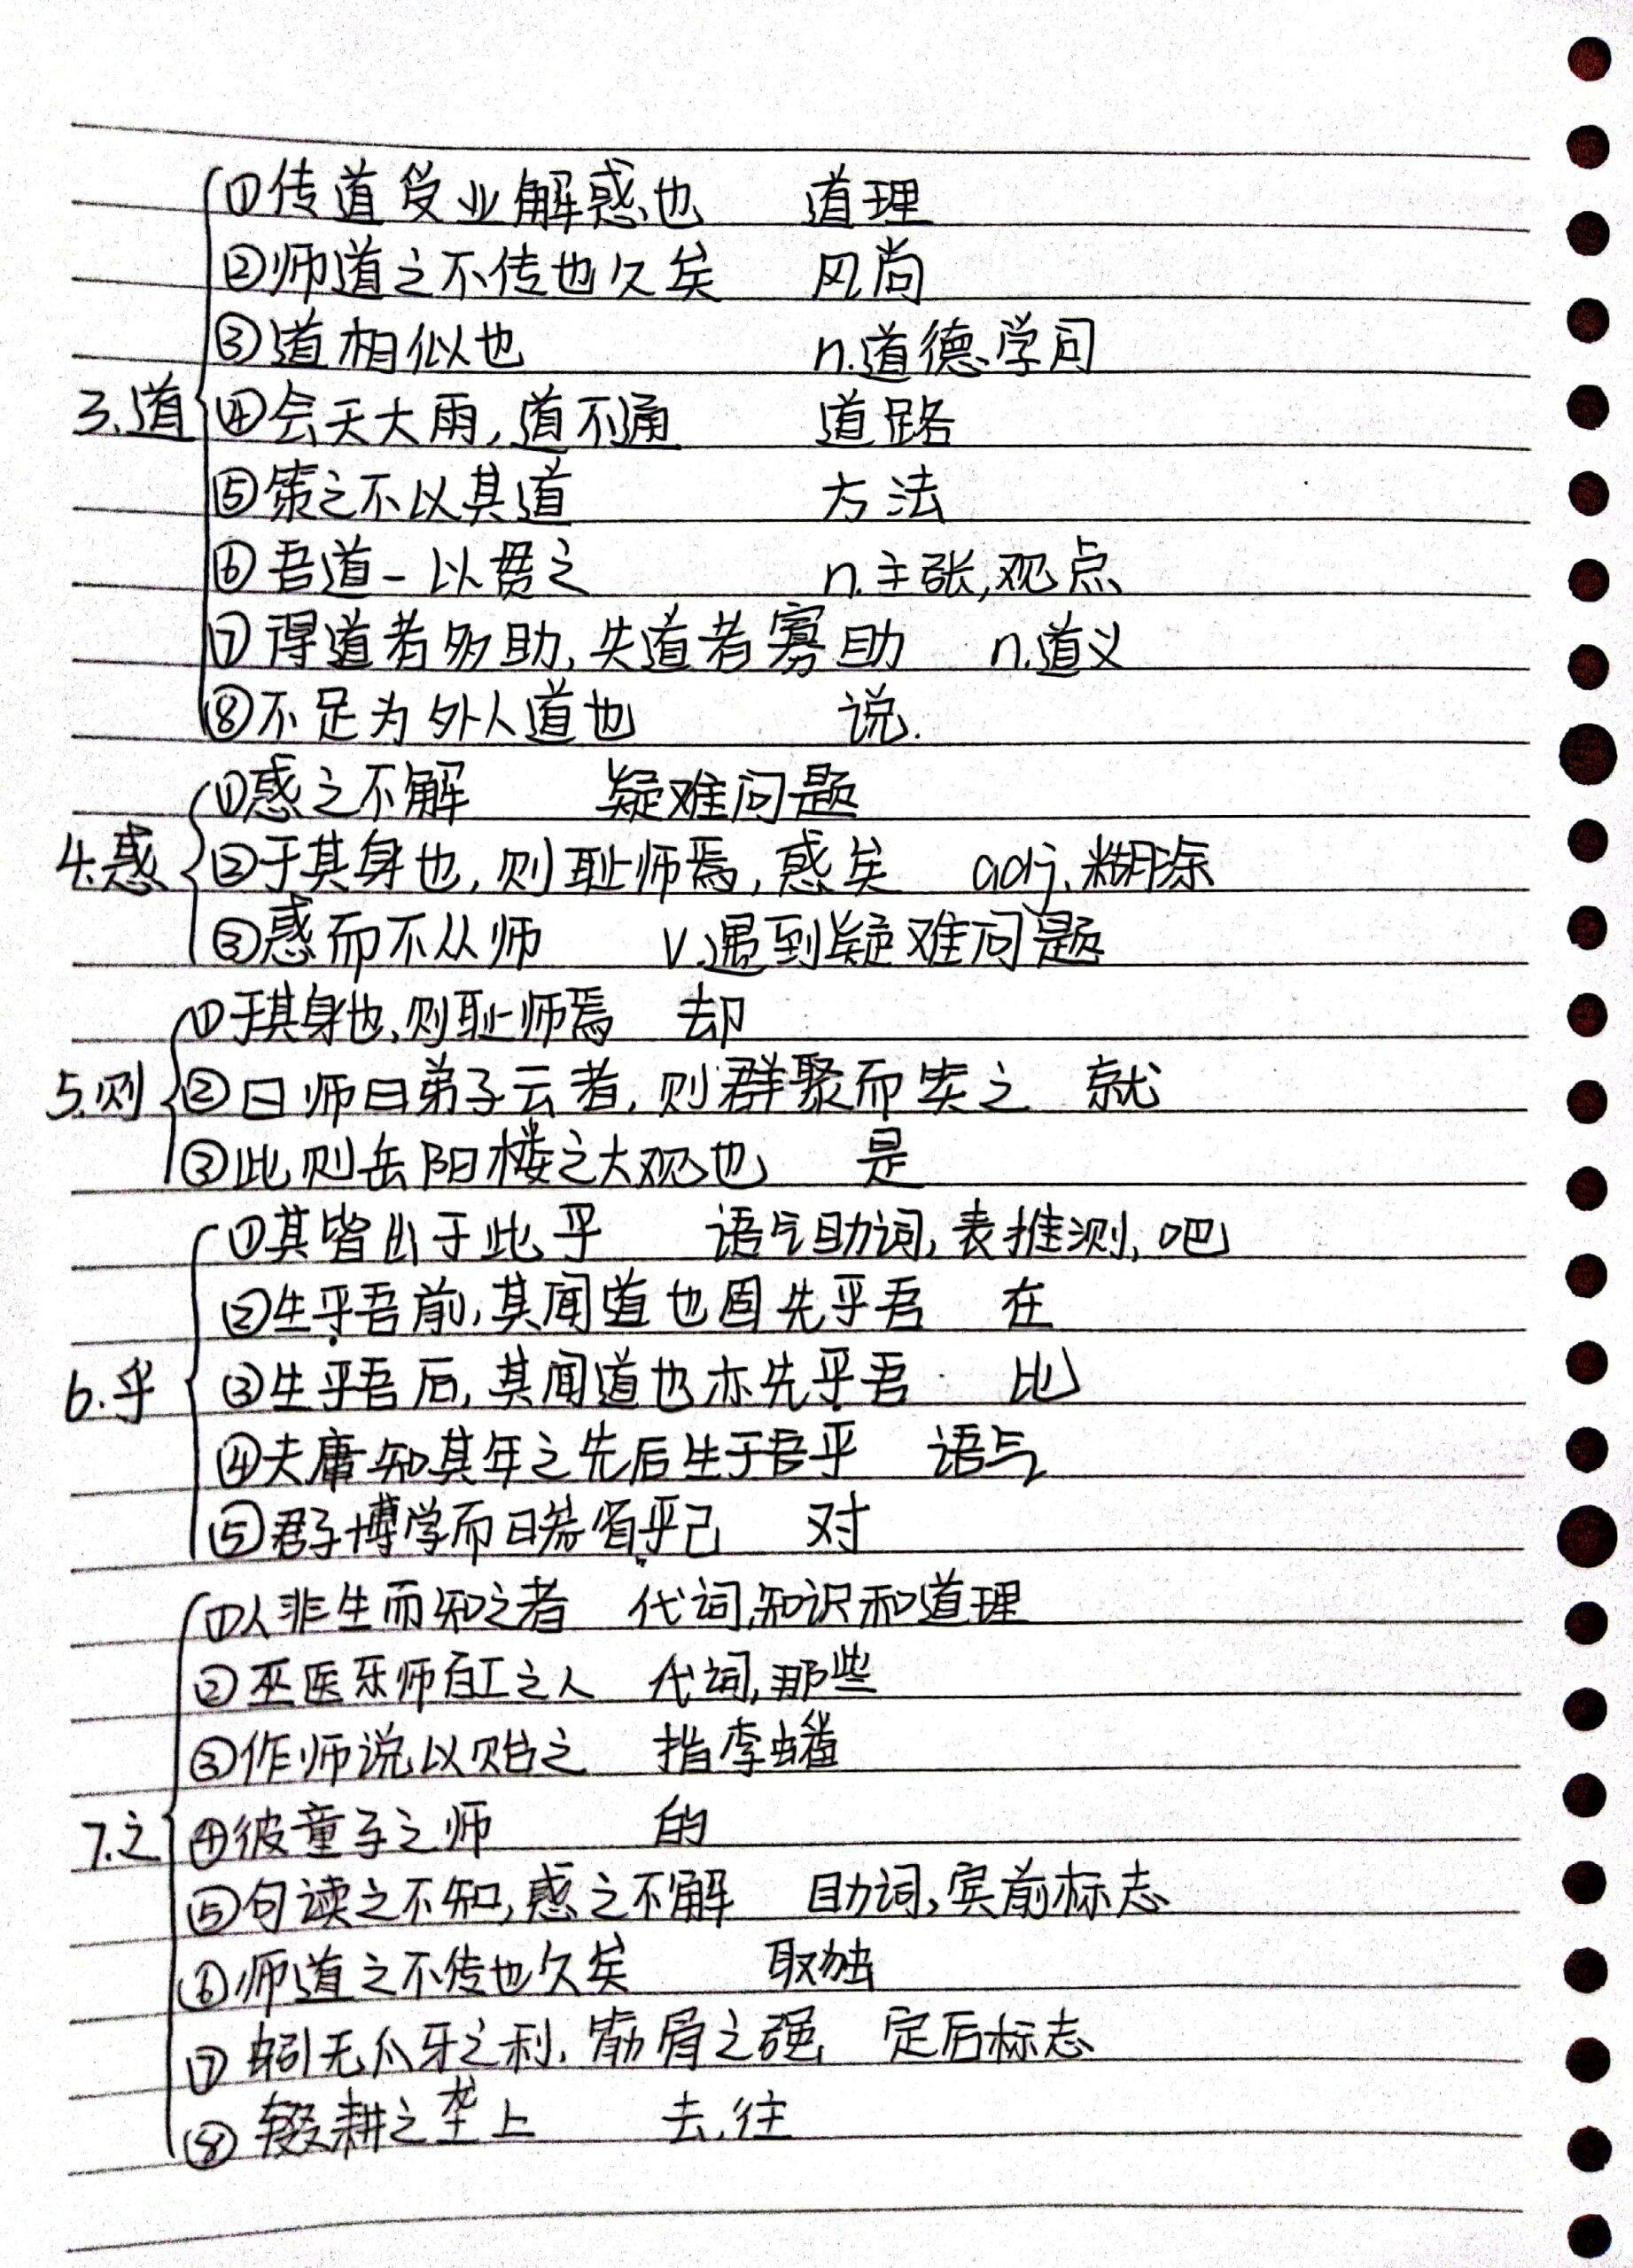 ①传道受业解惑也 道理
②师道之不传也久矣 风尚
③道相似也 n.道德、学问
3.道 ④会天大雨,道不通 道路
⑤策之不以其道 方法
⑥吾道一以贯之 n.主张,观点
⑦得道者多助,失道者寡助 n.道义
⑧不足为外人道也 说.
①惑之不解 疑难问题
4.惑 ②于其身也,则耻师焉,惑矣 adj.糊涂
③惑而不从师 v.遇到疑难问题
①于其身也,则耻师焉 却
5.则 ②曰师曰弟子云者,则群聚而笑之 就
③此则岳阳楼之大观也 是
①其皆出于此乎 语气助词,表推测,吧
②生乎吾前,其闻道也固先乎吾 在
6.乎 ③生乎吾后,其闻道也亦先乎吾 比
④夫庸知其年之先后生于吾乎 语气
⑤君子博学而日参省乎己 对
①人非生而知之者 代词,知识和道理
②巫医乐师百工之人 代词,那些
③作师说以贻之 指李蟠
7.之 ④彼童子之师 的
⑤句读之不知,惑之不解 助词,宾前标志
⑥师道之不传也久矣 取独
⑦蚓无爪牙之利,筋骨之强 定后标志
⑧辍耕之垄上 去,往